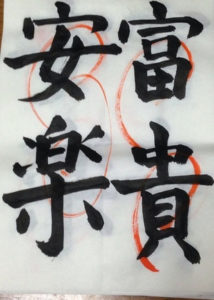 富貴
安楽